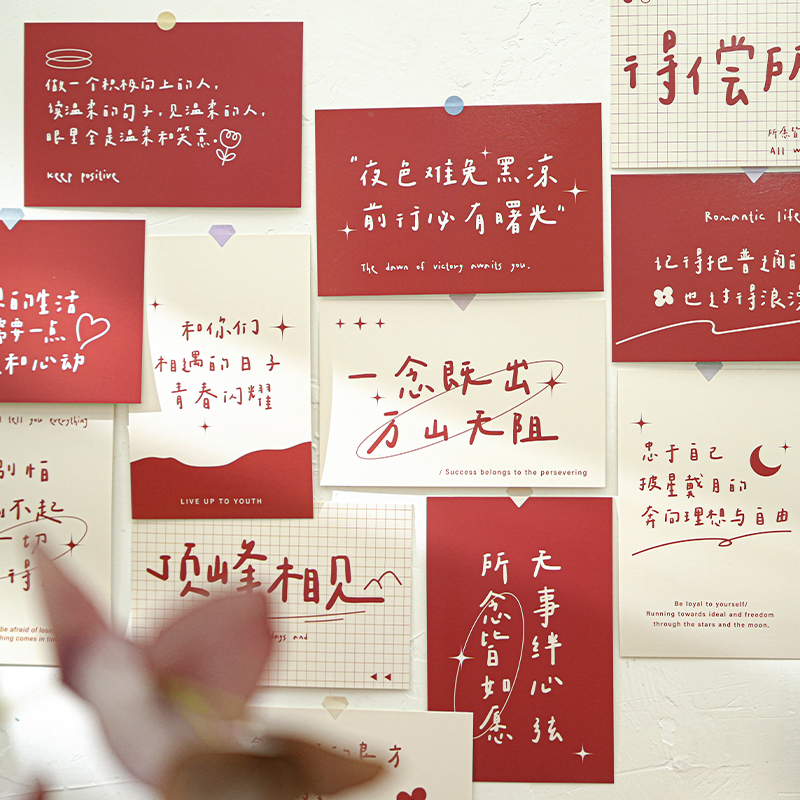 做一个积极向上的人,
读温柔的句子,见温柔的人,
眼里全是温柔和笑意.
keep positive
"夜色难免黑凉
前行必有曙光"
The dawn of victory awaits you.
得偿所
所愿皆
All w
Romantic life
记得把普通的
也过得浪漫
的生活
需要一点
和心动
和你们
相遇的日子
青春闪耀
LIVE UP TO YOUTH
一念既出
万山无阻
/ Success belongs to the persevering
忠于自己
披星戴月的
奔向理想与自由
Be loyal to yourself/
Running towards ideal and freedom
through the stars and the moon.
tell you everything
别怕
不起
一切
得
be afraid of
thing comes in
顶峰相见
and
无事绊心弦
所念皆如愿
方